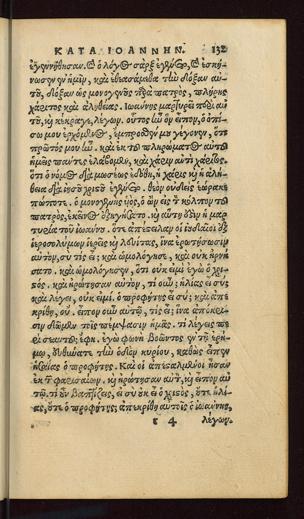 ΚΑΤΑ ΙΟΑΝΝΗΝ. 132
ἐγεννήθησαν. Καὶ ὁ λόγος σὰρξ ἐγένετο, καὶ ἐσκή-
νωσεν ἐν ἡμῖν, καὶ ἐθεασάμεθα τὴν δόξαν αὐ-
τοῦ, δόξαν ὡς μονογενοῦς παρὰ πατρὸς, πλήρης
χάριτος καὶ ἀληθείας. Ἰωάννης μαρτυρεῖ περὶ αὐ-
τοῦ, καὶ κέκραγε, λέγων. οὗτος ἦν ὃν εἶπον, ὁ ὀπί-
σω μου ἐρχόμενος, ἔμπροσθέν μου γέγονεν, ὅτι
πρῶτός μου ἦν. καὶ ἐκ τοῦ πληρώματος αὐτοῦ
ἡμεῖς πάντες ἐλάβομεν, καὶ χάριν ἀντὶ χάριτος.
ὅτι ὁ νόμος διὰ μωσέως ἐδόθη, ἡ χάρις καὶ ἡ ἀλή-
θεια διὰ ἰησοῦ χριστοῦ ἐγένετο. θεὸν οὐδεὶς ἑώρακε
πώποτε. ὁ μονογενὴς υἱὸς, ὁ ὢν εἰς τὸν κόλπον τοῦ
πατρὸς, ἐκεῖνος ἐξηγήσατο. καὶ αὕτη ἐστὶν ἡ μαρ-
τυρία τοῦ ἰωάννου. ὅτε ἀπέστειλαν οἱ ἰουδαῖοι ἐξ
ἱεροσολύμων ἱερεῖς καὶ λευίτας, ἵνα ἐρωτήσωσιν
αὐτὸν, σὺ τίς εἶ; καὶ ὡμολόγησε, καὶ οὐκ ἠρνή
σατο. καὶ ὡμολόγησεν, ὅτι οὐκ εἰμὶ ἐγὼ ὁ χρι-
σός. καὶ ἠρώτησαν αὐτὸν, τί οὖν; ἠλίας εἶ συ;
καὶ λέγει, οὐκ εἰμί. ὁ προφήτης εἶ συ; καὶ ἀπε
κρίθη, οὔ. εἶπον οὖν αὐτῷ, τίς εἶ; ἵνα ἀπόκρι-
σιν δῶμεν τοῖς πέμψασιν ἡμᾶς. τί λέγεις πε
ρὶ σεαυτοῦ; ἔφη. ἐγὼ φωνὴ βοῶντος ἐν τῇ ἐρή-
μῳ, εὐθύνατε τὴν ὁδὸν κυρίου, καθὼς εἶπεν
ἡσαΐας ὁ προφήτης. Καὶ οἱ ἀπεσταλμένοι ἦσαν
ἐκ τῶν φαρισαίων. καὶ ἠρώτησαν αὐτὸν, καὶ εἶπον αὐ
τῷ. τί οὖν βαπτίζεις, εἰ σὺ οὐκ εἶ ὁ χριστὸς, οὔτε ἠλί-
ας, οὔτε ὁ προφήτης; ἀπεκρίθη αὐτοῖς ὁ ἰωάννης,
s 4 λέγων.